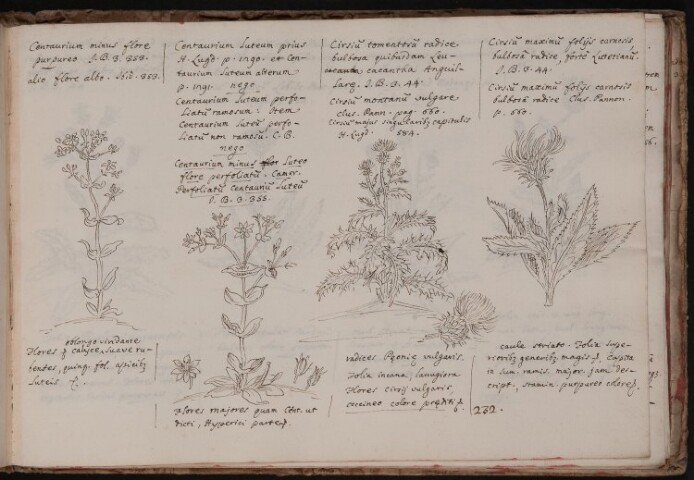 Centaurium minus flore
purpureo J.B.3.353.
alio flore albo. ibid. 353.
Centaurium Luteum prius
H. Lugd. p.
Centaurium Luteum alterum
p. nego
Centaurium Luteum perfo-
liatū ramosum: Item
Centaurium Luteū perfo-
liatū non ramosū. C.B.
nego
Centaurium minus Luteo
flore perfoliatū. Camer.
Perfoliatū Centauriū Luteū
J.B.3.355.
Cirsiū tomentosū radice
bulbosa quibusdam Leu-
cacantha Anguil-
lare. J.B.3.44.
Cirsiū montanū vulgare
Clus. Pann. pag. 660.
Cirsiū maius singularibȝ capitulis
H. Lugd. 584.
Cirsiū maximū folijs carnosis
bulbosâ radice fortè
J.B.3.44.
Cirsiū maximū folijs carnosis
bulbosâ radice Clus. Pannon.
p. 660.
oblongo viridante
Flores è calyce suave ru-
bentes, quinq. fol. apicibȝ
luteis
Flores majores quam Cent. ut
dicti, Hyperici
radices Pæoniæ vulgaris.
Folia incana, lanugiosa
Flores cirsij vulgaris,
coccineo colore præditi
caule striato. Folia supe-
rioribȝ generibȝ magis Capita
in sum. ramis. major. jam des-
cript., stamin. purpureo colore
232.